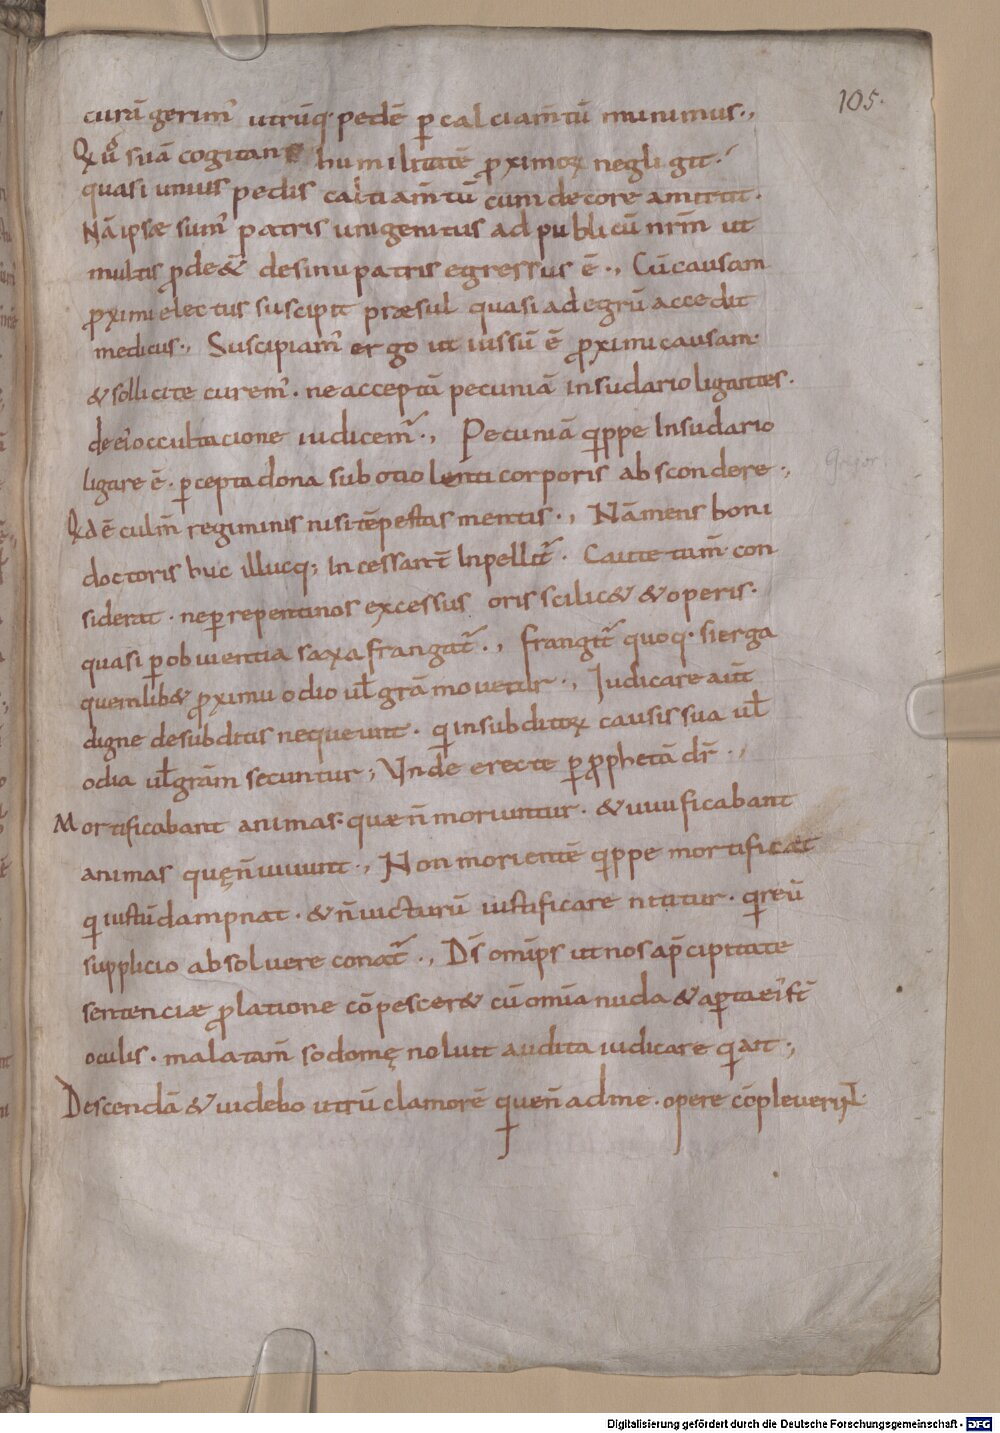 105.
curā gerim᾿ utrūq· pedē ꝑ calciam̄tū munimus·,
Qui ů suā cogitans humilitatē ꝓximoꝝ negligit·
quasi unius pedis calciam̄tū cum decore amittit·
Nā ipsæ sum᾿ patris unigenitus ad publicū nr̄m ut
multis ꝓde&̄ desinu patris egressus ē·, Cū causam
ꝓximi electus suscipit præsul quasi ad egrū accedit
medicus·, Suscipiam᾿ ergo ut iussū ē ꝓximi causam·
& sollicite curem᾿· ne acceptā pecuniā in sudario ligantes·
de ei᾿ occultacione iudicem᾿·, Pecuniā q̣ppe In sudario
ligare ē· ꝑcepta dona sub otio lenti corporis abscondere·,
Qd ē culm̄ regiminis nisi tēpestas mentis·, Nā mens boni
doctoris huc illucq; In cessant̄ Inpellit᾿· Caute tam̄ con
siderat· ne ꝑ repentinos excessus oris scilic& & operis·
quasi ꝑ obuientia saxa frangat᾿·, frangit᾿ quoq· si erga
quemlib& ꝓximu odio ul̄ grā mouetur·, Iudicare aut̄
digne de subditis nequeunt· qui in subditoꝝ causis sua ul̄
odia ul̄ grām secuntur, Unde erecte ꝑ ꝓphetā dr̄·,
Mortificabant animas· quæ n̄ moriuntur· & uiuificabant
animas quę n̄ uiuunt·, Non morientē q̣ppe mortificat
qui iustū dampnat· & n̄ uicturū iustificare nititur· qui reū
supplicio absoluere conat᾿·, Dš omīps ut nos a p̄cipitate
sentenciæ ꝓlatione cōpescer& cū omīa nuda & aꝑta ei᾿ st̄
oculis· mala tam̄ sodomę noluit audita iudicare qui ait·,
Descendā & uidebo utrū clamorē qui uen̄ ad me· opere cōpleuerint·
Digitalisierung gefördert durch die Deutsche Forschungsgemeinschaft - DFG